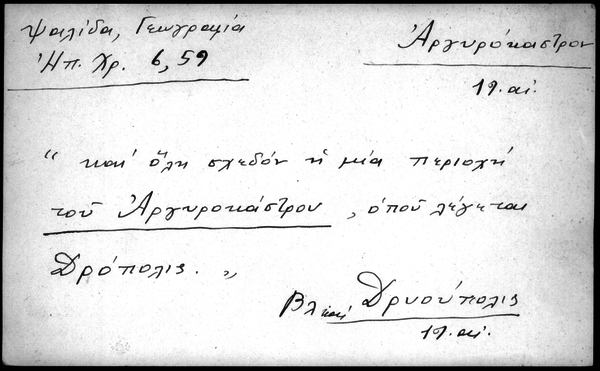 Ψαλίδα, Γεωγραφία
Ἠπ. Χρ. 6, 59
Ἀργυρόκαστρον
19. αἰ.
“ καί ὅλη σχεδόν ἡ μία περιοχή
τοῦ Ἀργυροκάστρου, ὁποῦ λέγεται
Δρόπολις. „
Βλ καί Δρυούπολις
19. αἰ.